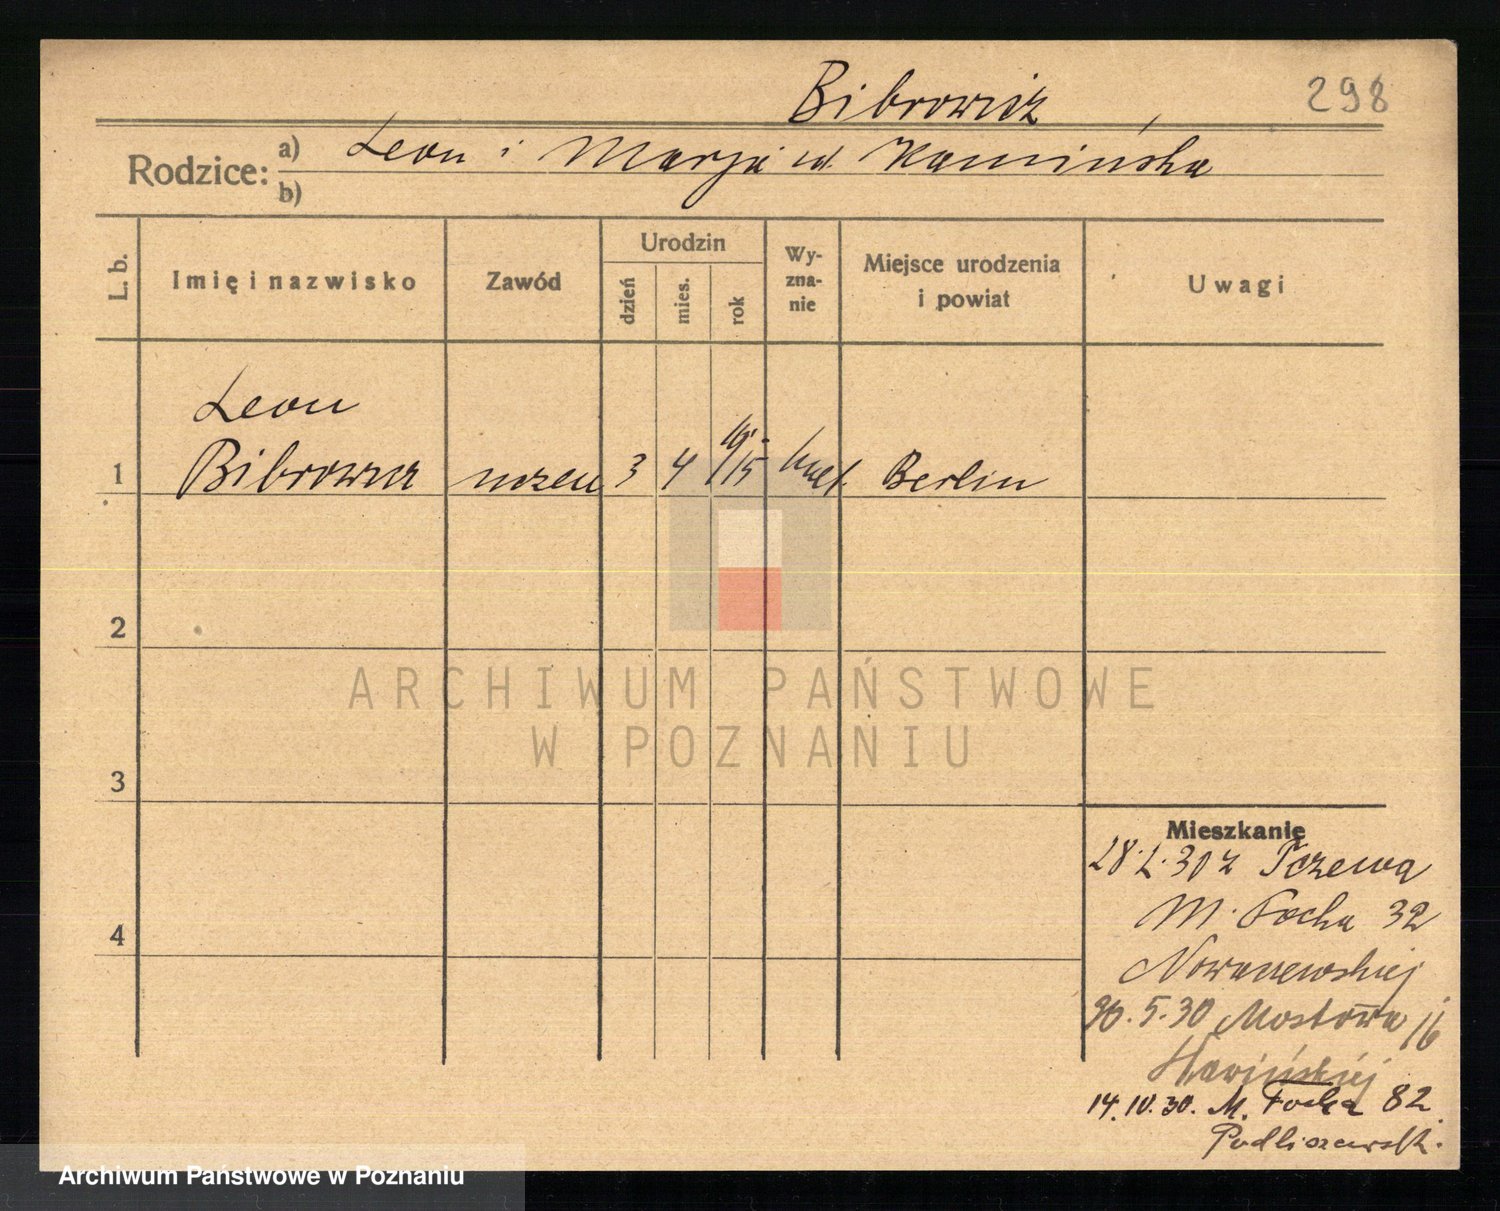 298
Bibrowicz
Rodzice: a) Leon i Marja ud. Kamińska
b)
L. b.
Imię i nazwisko
Zawód
Urodzin
dzień
mies.
rok
Wy-
zna-
nie
Miejsce urodzenia
i powiat
Uwagi
Leon
1 Bibrowicz uczeń 3 4 15 Berlin
2
3
4
ARCHIWUM PAŃSTWOWE
W POZNANIU
Mieszkanie
28.2.30 z Tczewa
M. Focha 32
30.5.30 Mostowa 16
14.10.30. M. Focha 82
Archiwum Państwowe w Poznaniu